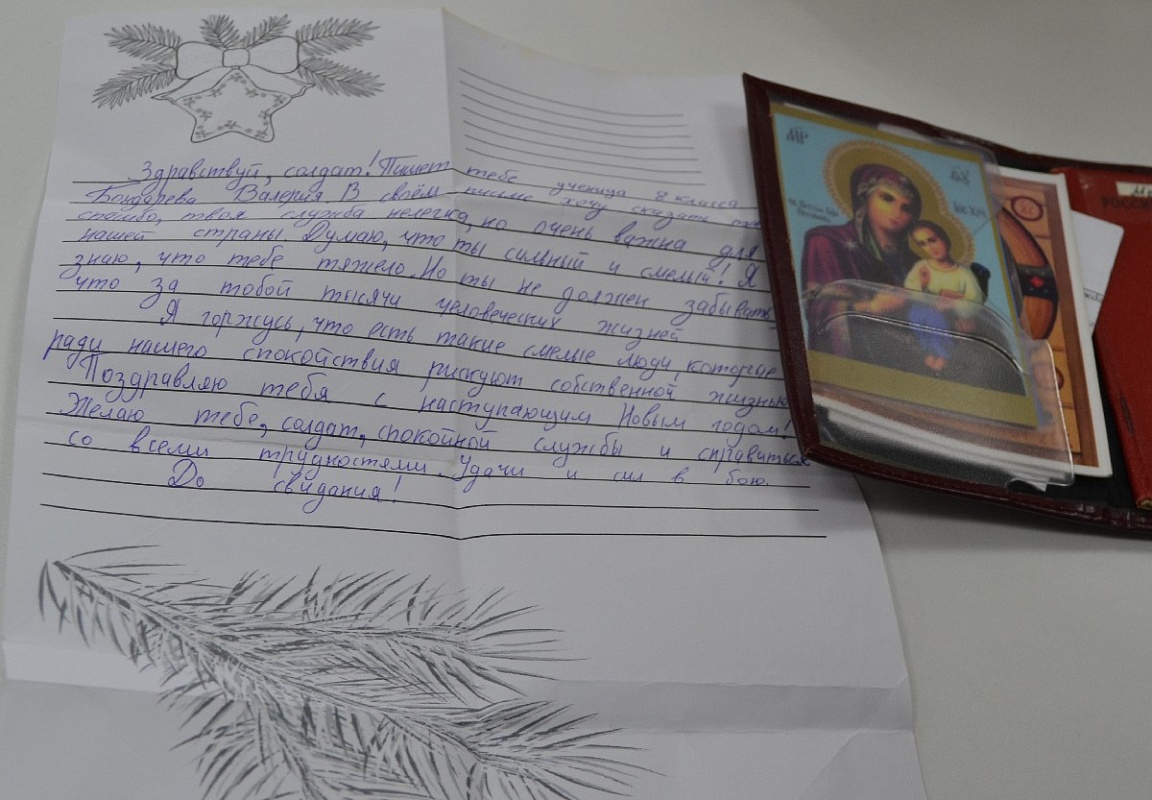 Здравствуй, солдат! Пишет тебе ученица 8 класса
Бондарева Валерия. В своём письме хочу сказать
спасибо, твоя служба нелегка, но очень важна для
нашей страны. Думаю, что ты сильный и смелый! Я
знаю, что тебе тяжело. Но ты не должен забывать,
что за тобой тысячи человеческих жизней.
Я горжусь, что есть такие смелые люди, которые
ради нашего спокойствия рискуют собственной жизнью.
Поздравляю тебя с наступающим Новым годом!
Желаю тебе, солдат, спокойной службы и справиться
со всеми трудностями. Удачи и сил в бою.
До свидания!